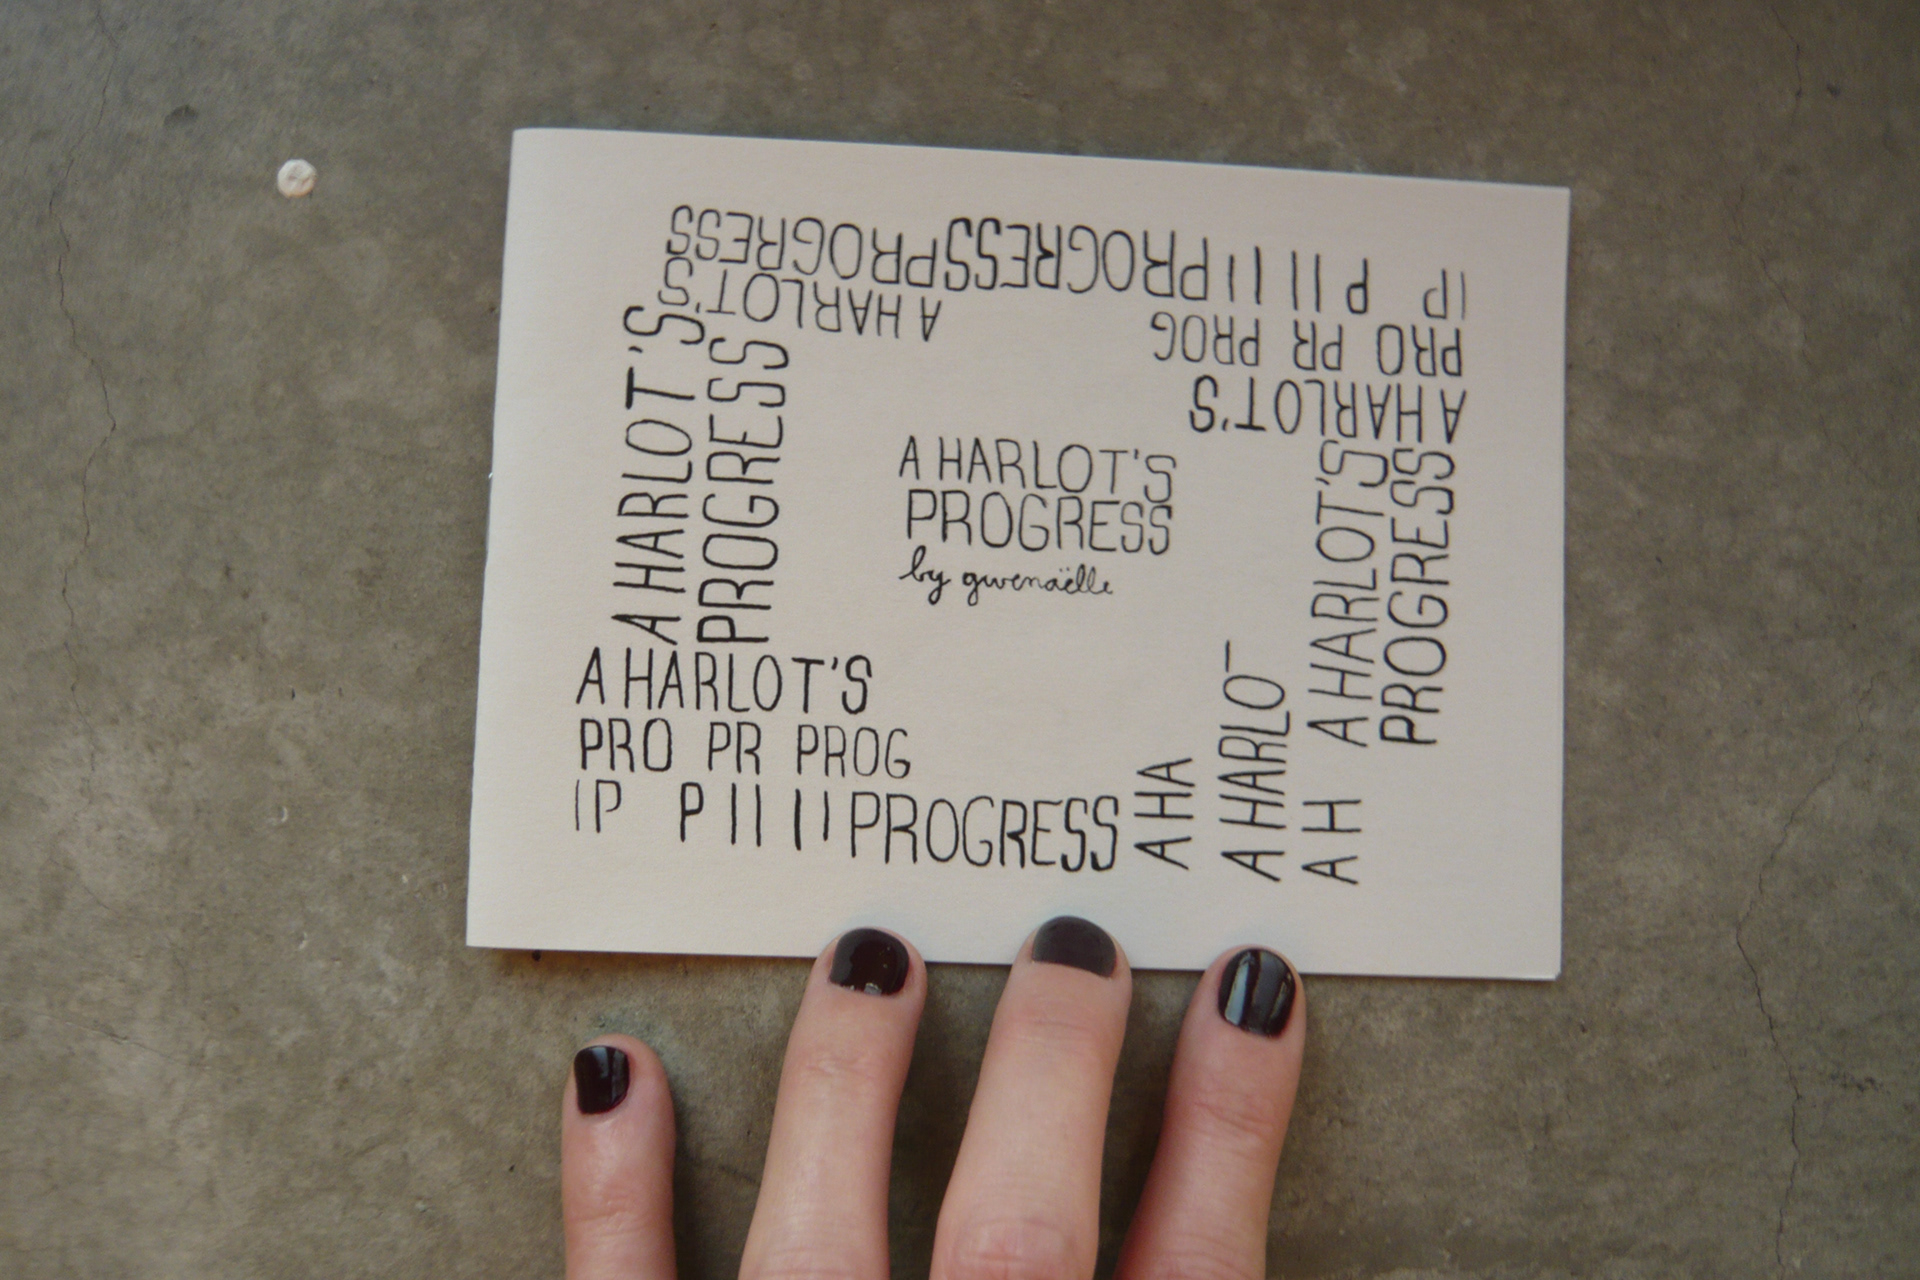 IP P II II PROGRESSPROGRESS
PRO PR PROG
A HARLOT'S
A HARLOT'S
A HARLOT'S
PROGRESS
A HARLOT'S
PROGRESS
by gwenaëlle
A HARLOT'S
PROGRESS
A HARLOT'S
PRO PR PROG
IP P II II PROGRESS
A HA
A HARLOT
A H